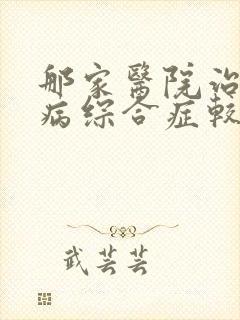 那家醫院治
病综合症較
武芸芸